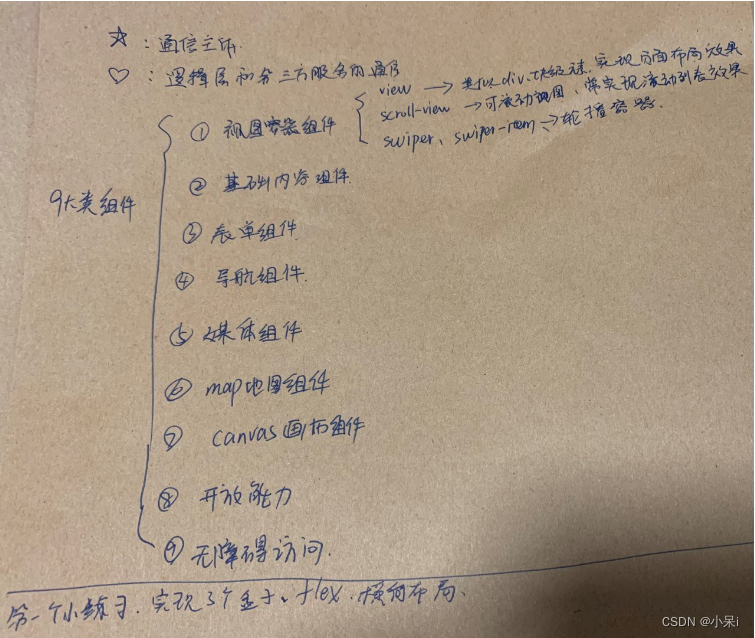 ☆：通信主体.
♡：逻辑层和第三方服务的通信
9大类组件
① 视图容器组件
view → 类似div.块级元素.实现页面布局效果
scroll-view → 可滚动视图、常实现滚动列表效果
swiper、swiper-item、→轮播容器.
② 基础内容组件.
③ 表单组件.
④ 导航组件.
⑤ 媒体组件
⑥ map地图组件
⑦ canvas画布组件
⑧ 开放能力
⑨ 无障碍访问.
第一个小练习.实现3个盒子。flex.横向布局.
CSDN @小呆i